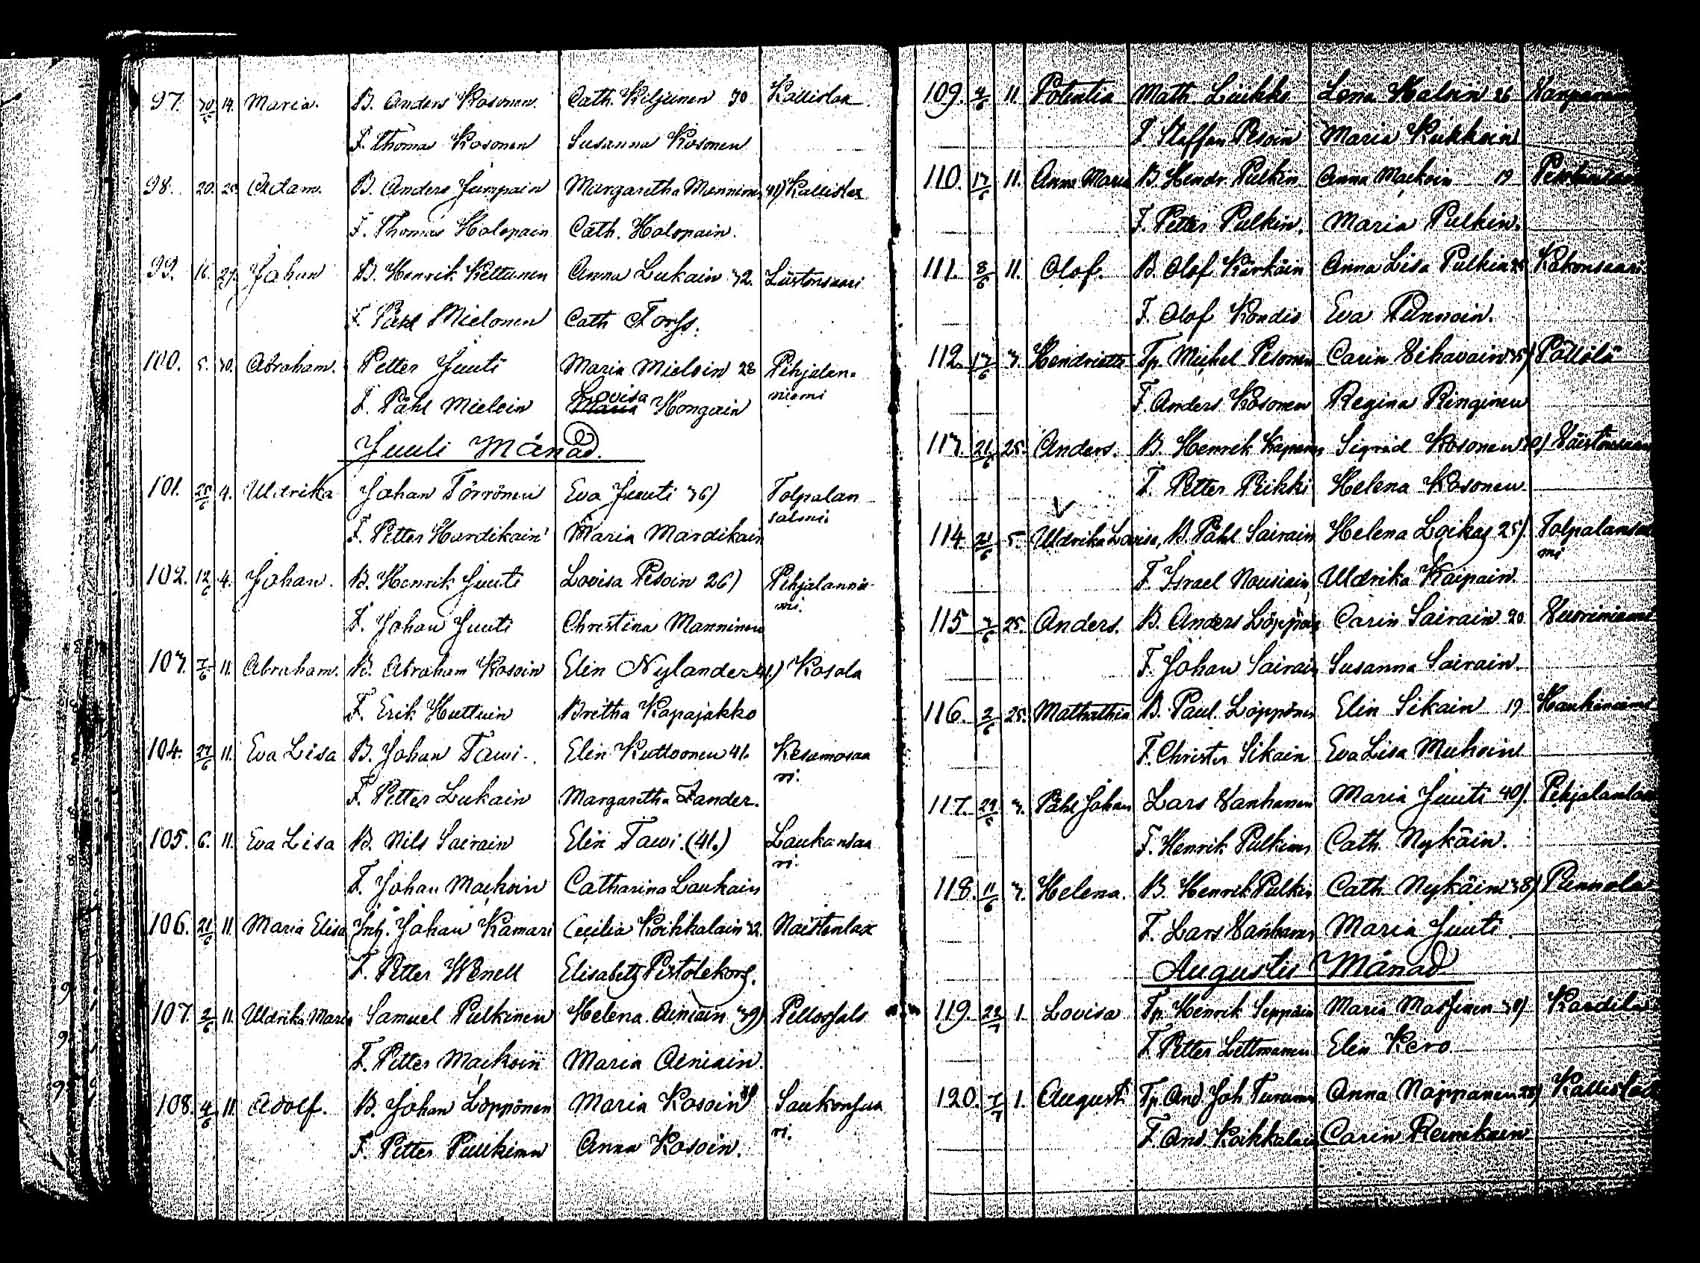 97. 30/5 14. Maria. B. Anders Kosonen Cath. Kiljunen 30 Kallislax
F. Thomas Kosonen Susanna Kosonen
98. 20. 20 Adam. B. Anders Jumpain Margaretha Manninen 41) Kallislax
F. Thomas Holopain Cath. Holopain.
99. 16. 27. Johan B. Henrik Kettunen Anna Lukain 32. Liistonsaari
F. Påhl Mielonen Cath Forss.
100. 5. 30. Abraham. Petter Juuti Maria Mieloin 28 Pihjalan-
niemi
F. Påhl Mieloin Lovisa Hongain
Juuli Månad.
101. 25/6 4. Uldrika Johan Törrönen Eva Juuti 36) Tolpalan
salmi.
F. Petter Hardikain Maria Mardikain
102. 12/6 4. Johan. B. Henrik Juuti Lovisa Pesoin 26) Pihjalannie
mi.
F. Johan Juuti Christina Manninen
103. 7/6 11. Abraham. B. Abraham Kosoin Elin Nylander 41.) Kosola
F. Erik Huttuin Britha Kapajakko
104. 27/6 11. Eva Lisa B. Johan Tawi. Elin Kuttoonen 41. Kesamosaa
ri.
F. Petter Lukain Margaretha Zander.
105. 6. 11. Eva Lisa B. Nils Sairain Elin Tawi. (41.) Laukansaa
ri.
F. Johan Mackoin Catharina Laukain
106. 21/6 11. Maria Elisa Inh. Johan Kamari Cecilia Koikkalain 32. Naistenlax
F. Petter Wenell Elisabeth Pistolekors.
107. 2/6 11. Uldrika Maria Samuel Pulkinen Helena Ainiain 39) Pellossalo
F. Petter Mackoin Maria Ainiain.
108. 4/6 11. Adolf. B. Johan Löppönen Maria Kosoin 39 Saukonsaa
ri.
F. Petter Puikinen Anna Kosoin.
109. 4/6 11 Potentia Math. Laikko Lena Halnen 26
F. Staffan Pesoin Maria Kukkoin
110. 17/6 11. Anna Maria B. Hendr. Pulkin Anna Mackoin 19
F. Petter Pulkin. Maria Pulkin.
111. 8/6 11. Olof. B. Olof Kärkäin Anna Lisa Pulkin 25 Kokonsaari
F. Olof Kondio Eva Pennoin.
112. 17/6 3. Hendrietta Tp. Michel Pesonen Carin Vihavain 35) Pöllölä
F. Anders Kosonen Regina Ringinen
113. 21/6 25. Anders. B. Henrik Kapanen Sigrid Kosonen 30)
F. Petter Pirkki Helena Kosonen
114. 21/6 5. Uldrika Lovisa, B. Påhl Sairain Helena Loikas 25). Tolpalansal
mi
F. Israel Nousiain, Uldrika Kaipain.
115 7/6 25. Anders. B. Anders Löppönen Carin Sairain 20. Vuoriniemi
F. Johan Sairain Susanna Sairain.
116. 2/6 25. Mathathia B. Paul Löppönen Elin Sikain 19 Haukiniemi
F. Christer Sikain Eva Lisa Muhoin
117. 29/6 3. Påhl Johan Lars Vanhanen Maria Juuti 40).
F. Henrik Pulkinen Cath. Nykäin.
118. 11/6 3. Helena. B. Henrik Pulkin Cath. Nykäin 38) Punnola
F. Lars Vanhanen Maria Juuti.
Augusti Månad
119. 22/7 1. Lovisa Tp. Henrik Seppäin Maria Massinen 39) Kardila
F. Petter Littmanen Elin Kero
120. 7/7 1. August Tp. And. Joh Turunen Anna Nappanen 28) Kallislax
F. And. Koikkalain Carin Reinikain